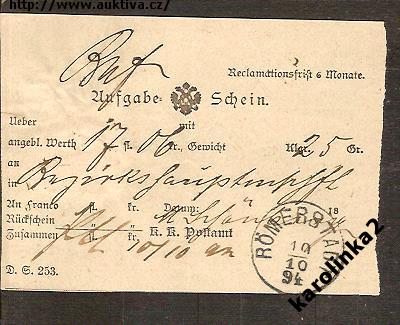 http://www.auktiva.cz/
Brf
Reclamationsfrist 6 Monate.
Aufgabe- Schein.
Ueber mit
angebl. Werth 17 fl. 06 kr., Gewicht Klgr. 25 Gr.
an Bezirkshauptmschft
in
An Franco fl. kr. Datum: 18
Rückschein M. Schönberg
Zusammen fl. kr. K. K. Postamt
10/10
D. S. 253.
RÖMERSTADT
10
10
94
karolinka2